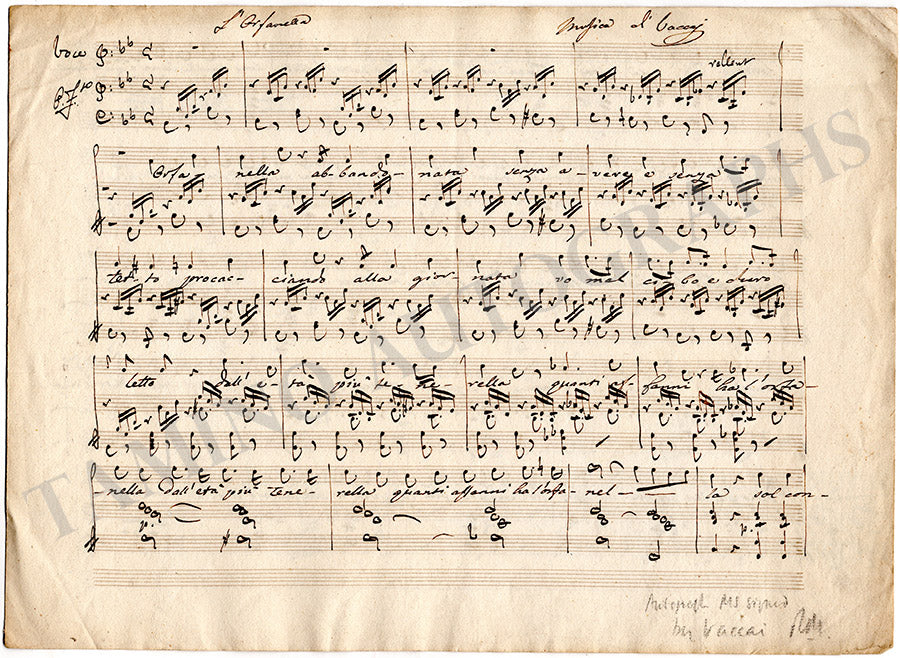 L'Orfanella Musica di Vaccaj
Voce
P.F.to
rallent
Orfa- nella ab-bando- nata senza a- vere e senza
tet-to procac- ciando alla gior- nata un mal ci-bo e duro
letto dall'e- tà più te-ne- rella quanti af- fanni ha l'orfa-
nella dall'età più tene- rella quanti affanni ha l'orfa- nel- la sol con-
p.
p.
TAMINO AUTOGRAPHS
Autograph MS signed
by Vaccai